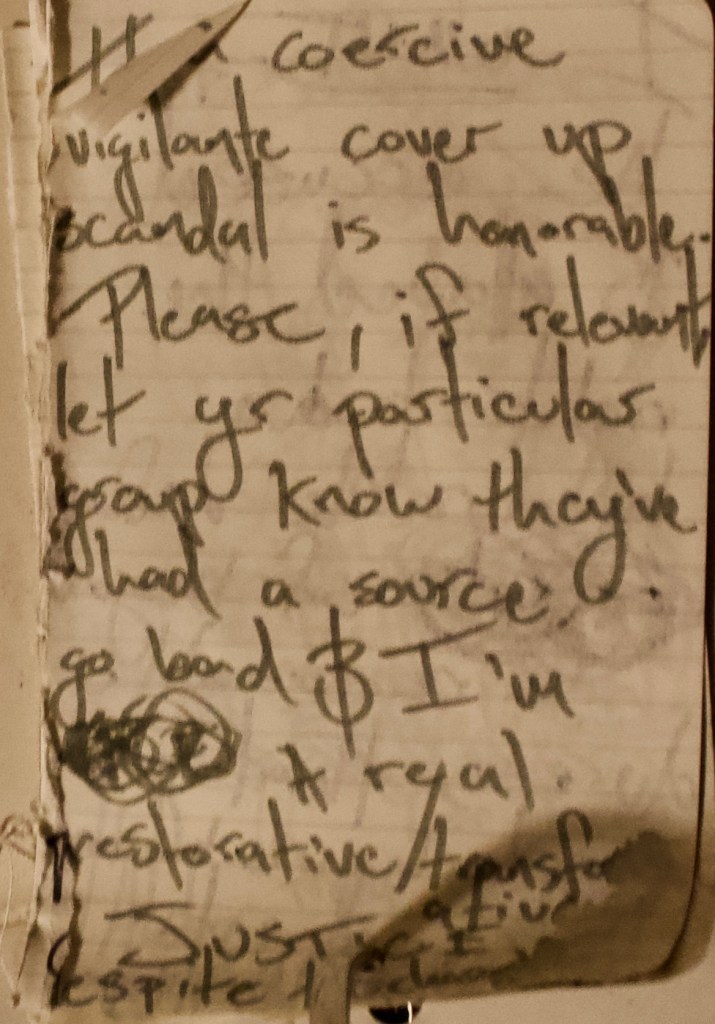 coercive
vigilante cover up
scandal is honorable.
Please, if relevant,
let yr particular
group know they've
had a source
go bad & I'm
A real
restorative/transfo
ative
JUSTICE
espite